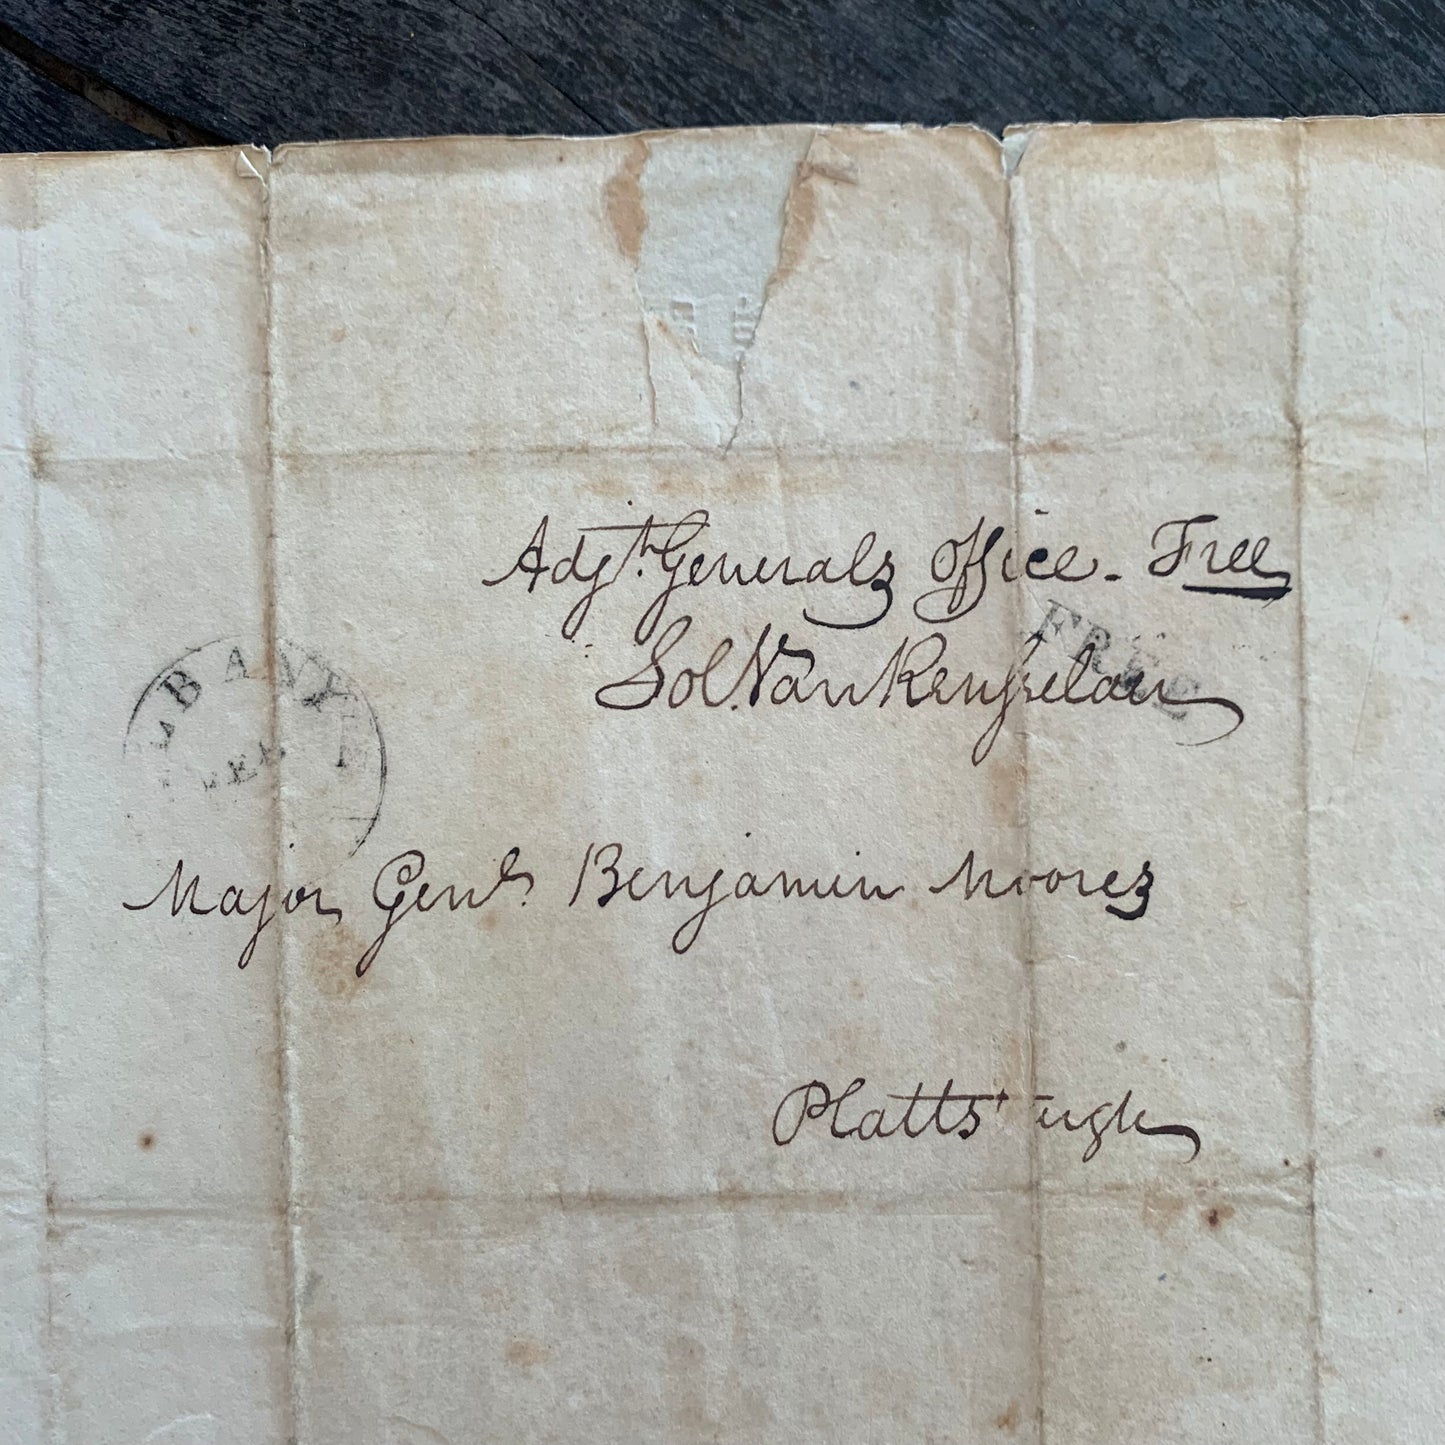 Adjt. Generals Office - Free
FREE
Sol. Van Rensselaer
ALBANY
FEB
Major Genl. Benjamin Mooers
Plattsburgh